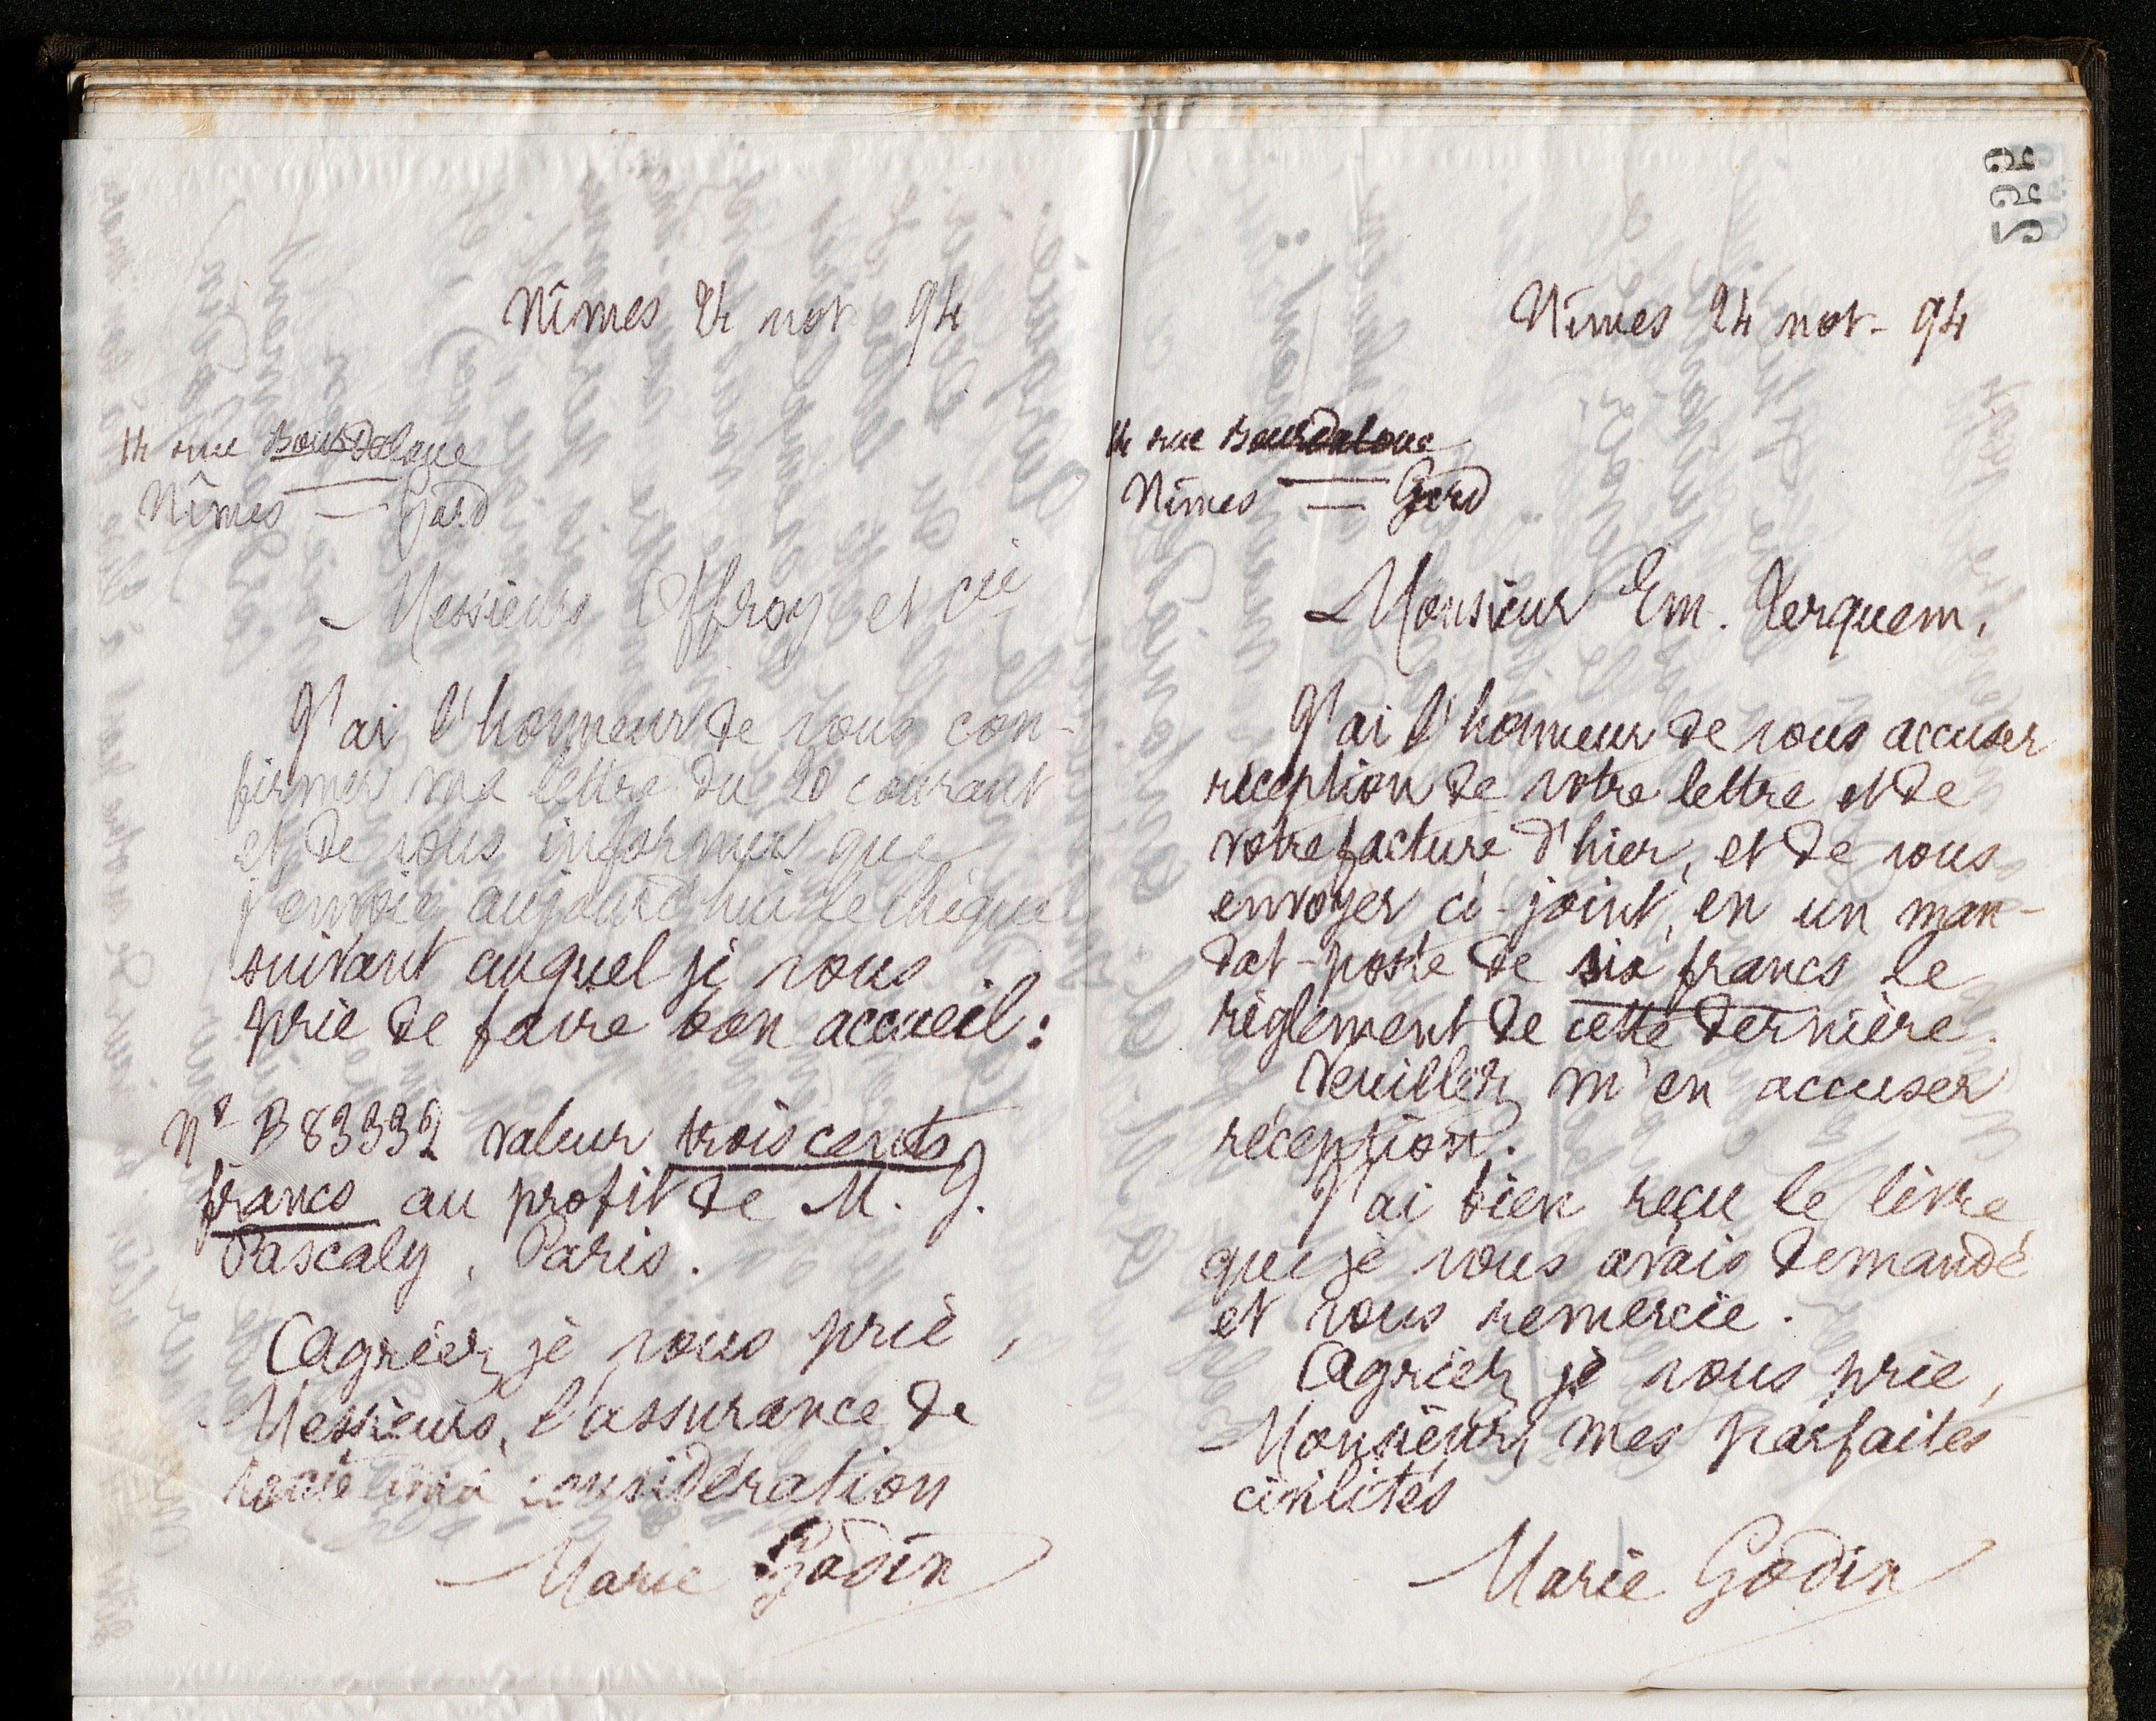 Nîmes 24 nov. 94
14 rue Bourdaloue
Nîmes — Gard
Messieurs Offroy et Cie
J'ai l'honneur de vous con-
firmer ma lettre du 20 courant
et de vous informer que
j'envoie aujourd'hui le chèque
suivant auquel je vous
prie de faire bon accueil :
No B 83332 valeur trois cents
francs au profit de M. J.
Pascaly, Paris.
Agréez, je vous prie,
Messieurs, l'assurance de
toute ma considération
Marie Godin
522
Nîmes 24 nov. 94
14 rue Bourdaloue
Nîmes — Gard
Monsieur Em. Terquem,
J'ai l'honneur de vous accuser
réception de votre lettre et de
votre facture d'hier, et de vous
envoyer ci-joint, en un man-
dat-poste de six francs le
règlement de cette dernière.
Veuillez m'en accuser
réception.
J'ai bien reçu le livre
que je vous avais demandé
et vous remercie.
Agréez, je vous prie,
Monsieur, mes parfaites
civilités
Marie Godin